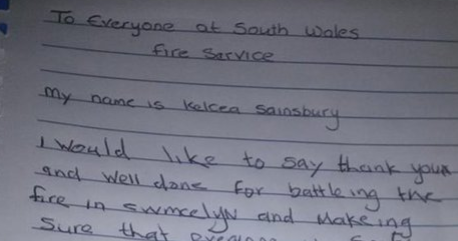 To Everyone at South Wales
Fire Service
My name is Kelcea Sainsbury
I would like to say thank you
and well done for battleing the
fire in swmcelyn and Makeing
Sure that